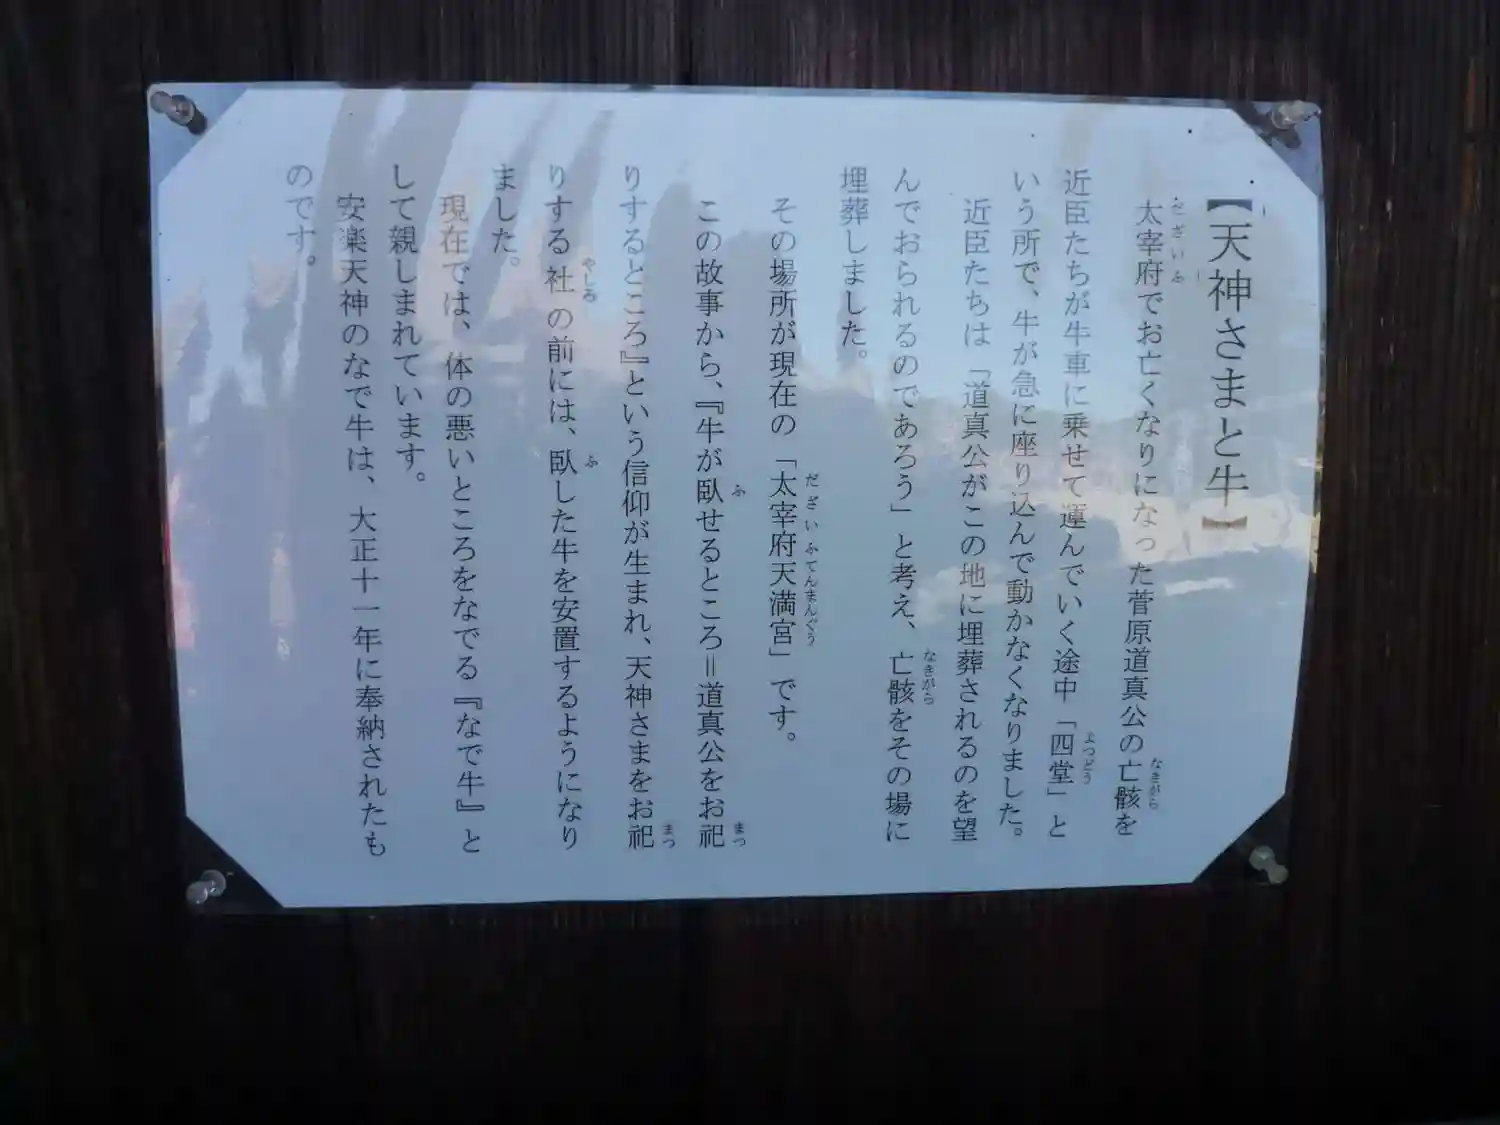 【天神さまと牛】
太宰府でお亡くなりになった菅原道真公の亡骸を
近臣たちが牛車に乗せて運んでいく途中「四堂」と
いう所で、牛が急に座り込んで動かなくなりました。
近臣たちは「道真公がこの地に埋葬されるのを望
んでおられるのであろう」と考え、亡骸をその場に
埋葬しました。
その場所が現在の「太宰府天満宮」です。
この故事から、『牛が臥せるところ＝道真公をお祀
りするところ』という信仰が生まれ、天神さまをお祀
りする社の前には、臥した牛を安置するようになり
ました。
現在では、体の悪いところをなでる『なで牛』と
して親しまれています。
安楽天神のなで牛は、大正十一年に奉納されたも
のです。